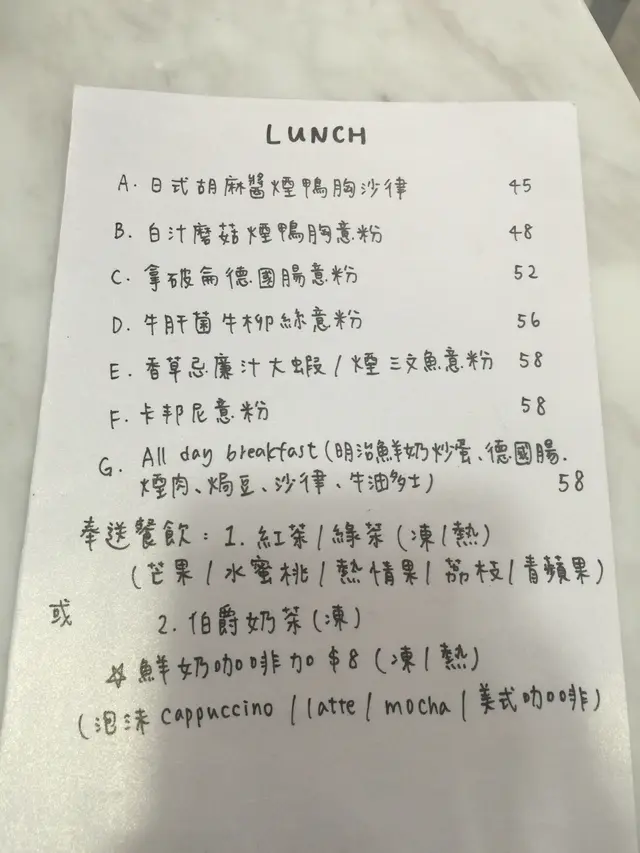 LUNCH
A. 日式胡麻醬煙鴨胸沙律 45
B. 白汁磨菇煙鴨胸意粉 48
C. 拿破侖德國腸意粉 52
D. 牛肝菌牛柳絲意粉 56
E. 香草忌廉汁大蝦/煙三文魚意粉 58
F. 卡邦尼意粉 58
G. All day breakfast (明治鮮奶炒蛋、德國腸.
煙肉、焗豆、沙律、牛油多士) 58
奉送餐飲: 1. 紅茶/綠茶 (凍/熱)
(芒果/水蜜桃/熱情果/荔枝/青蘋果)
或 2. 伯爵奶茶 (凍)
☆ 鮮奶咖啡加 $8 (凍/熱)
(泡沫 cappuccino / latte / mocha / 美式咖啡)